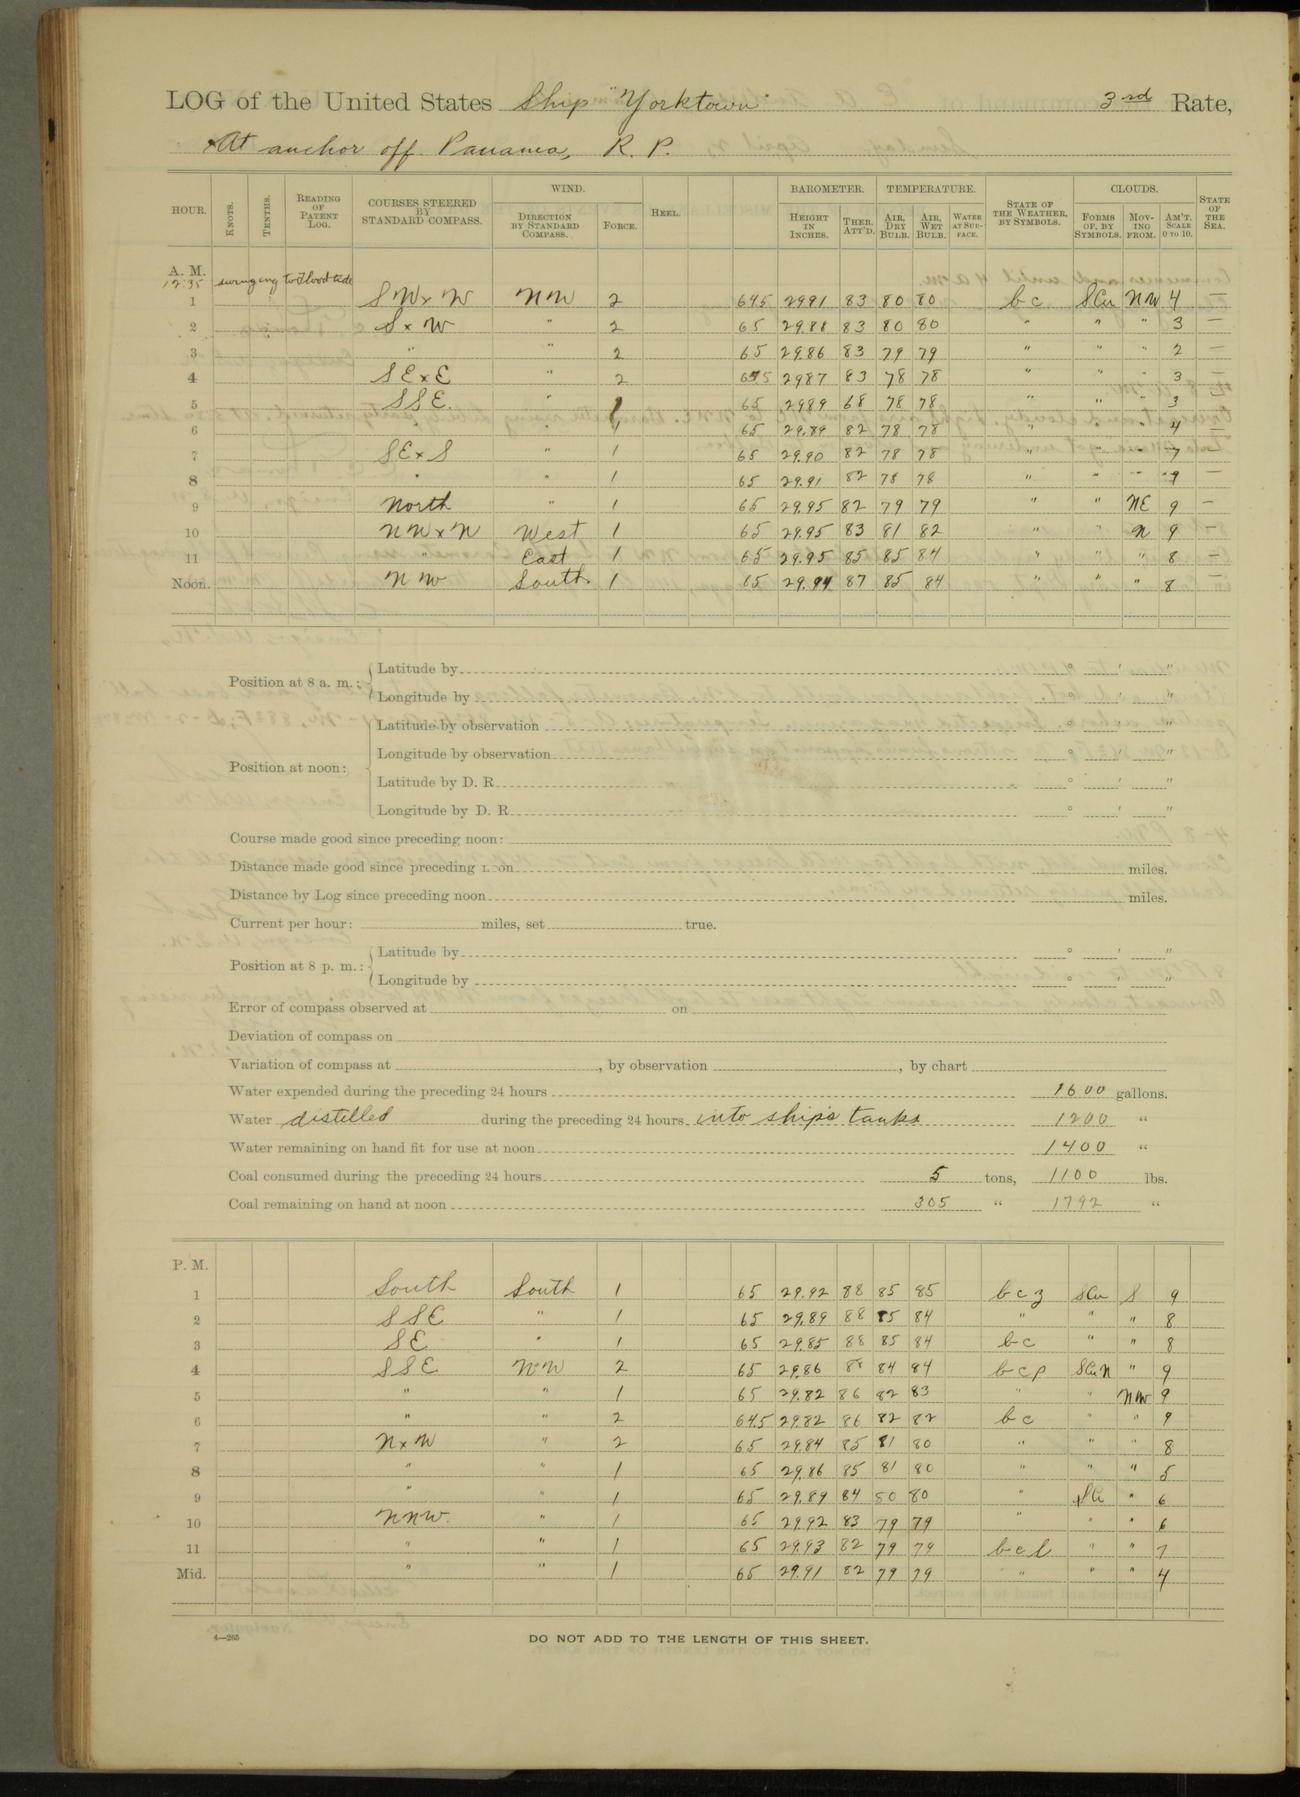 LOG of the United States Ship "Yorktown" 3rd Rate,
At anchor off Panama, R. P.
HOUR. KNOTS. TENTHS. READING OF PATENT LOG. COURSES STEERED BY STANDARD COMPASS. WIND. DIRECTION BY STANDARD COMPASS. FORCE. HEEL. BAROMETER. HEIGHT IN INCHES. THER. ATT'D. TEMPERATURE. AIR, DRY BULB. AIR, WET BULB. WATER AT SURFACE. STATE OF THE WEATHER, BY SYMBOLS. CLOUDS. FORMS OF, BY SYMBOLS. MOVING FROM. AM'T. SCALE 0 TO 10. STATE OF THE SEA.
A. M.
12:35 swinging to flood tide
1 SWxW NW 2 645 2991 83 80 80 bc SCu NW 4 —
2 SxW " 2 65 29.88 83 80 80 " " " 3 —
3 " " 2 65 29.86 83 79 79 " " " 2 —
4 SExE " 2 645 2987 83 78 78 " " " 3 —
5 SSE. " 1 65 2989 68 78 78 " " " 3 —
6 " " 1 65 29.89 82 78 78 " " " 4 —
7 SExS " 1 65 29.90 82 78 78 " " " 7 —
8 " " 1 65 29.91 82 78 78 " " " 9 —
9 North " 1 65 29.95 82 79 79 " " NE 9 —
10 NWxN West 1 65 29.95 83 81 82 " " N 9 —
11 " East 1 65 29.95 85 85 84 " " " 8 —
Noon. NW South 1 65 29.94 87 85 84 " " " 8 —
Position at 8 a. m.: Latitude by ° ' "
Longitude by ° ' "
Position at noon: Latitude by observation ° ' "
Longitude by observation ° ' "
Latitude by D. R. ° ' "
Longitude by D. R. ° ' "
Course made good since preceding noon:
Distance made good since preceding noon miles.
Distance by Log since preceding noon miles.
Current per hour: miles, set true.
Position at 8 p. m.: Latitude by ° ' "
Longitude by ° ' "
Error of compass observed at on
Deviation of compass on
Variation of compass at , by observation , by chart
Water expended during the preceding 24 hours 1600 gallons.
Water distilled during the preceding 24 hours into ship's tanks 1200 "
Water remaining on hand fit for use at noon 1400 "
Coal consumed during the preceding 24 hours 5 tons, 1100 lbs.
Coal remaining on hand at noon 305 " 1792 "
P. M.
1 South South 1 65 29.92 88 85 85 bcz SCu S 9
2 SSE " 1 65 29.89 88 85 84 " " " 8
3 SE " 1 65 29.85 88 85 84 bc " " 8
4 SSE NW 2 65 29.86 88 84 84 bcp SCuN " 9
5 " " 1 65 29.82 86 82 83 " " NW 9
6 " " 2 645 29.82 86 82 82 bc " " 9
7 NxW " 2 65 29.84 85 81 80 " " " 8
8 " " 1 65 29.86 85 81 80 " " " 5
9 " " 1 65 29.89 84 80 80 " " 6
10 NNW. " 1 65 2992 83 79 79 " " " 6
11 " " 1 65 2993 82 79 79 bcl " " 7
Mid. " " 1 65 29.91 82 79 79 " " " 4
4—265
DO NOT ADD TO THE LENGTH OF THIS SHEET.